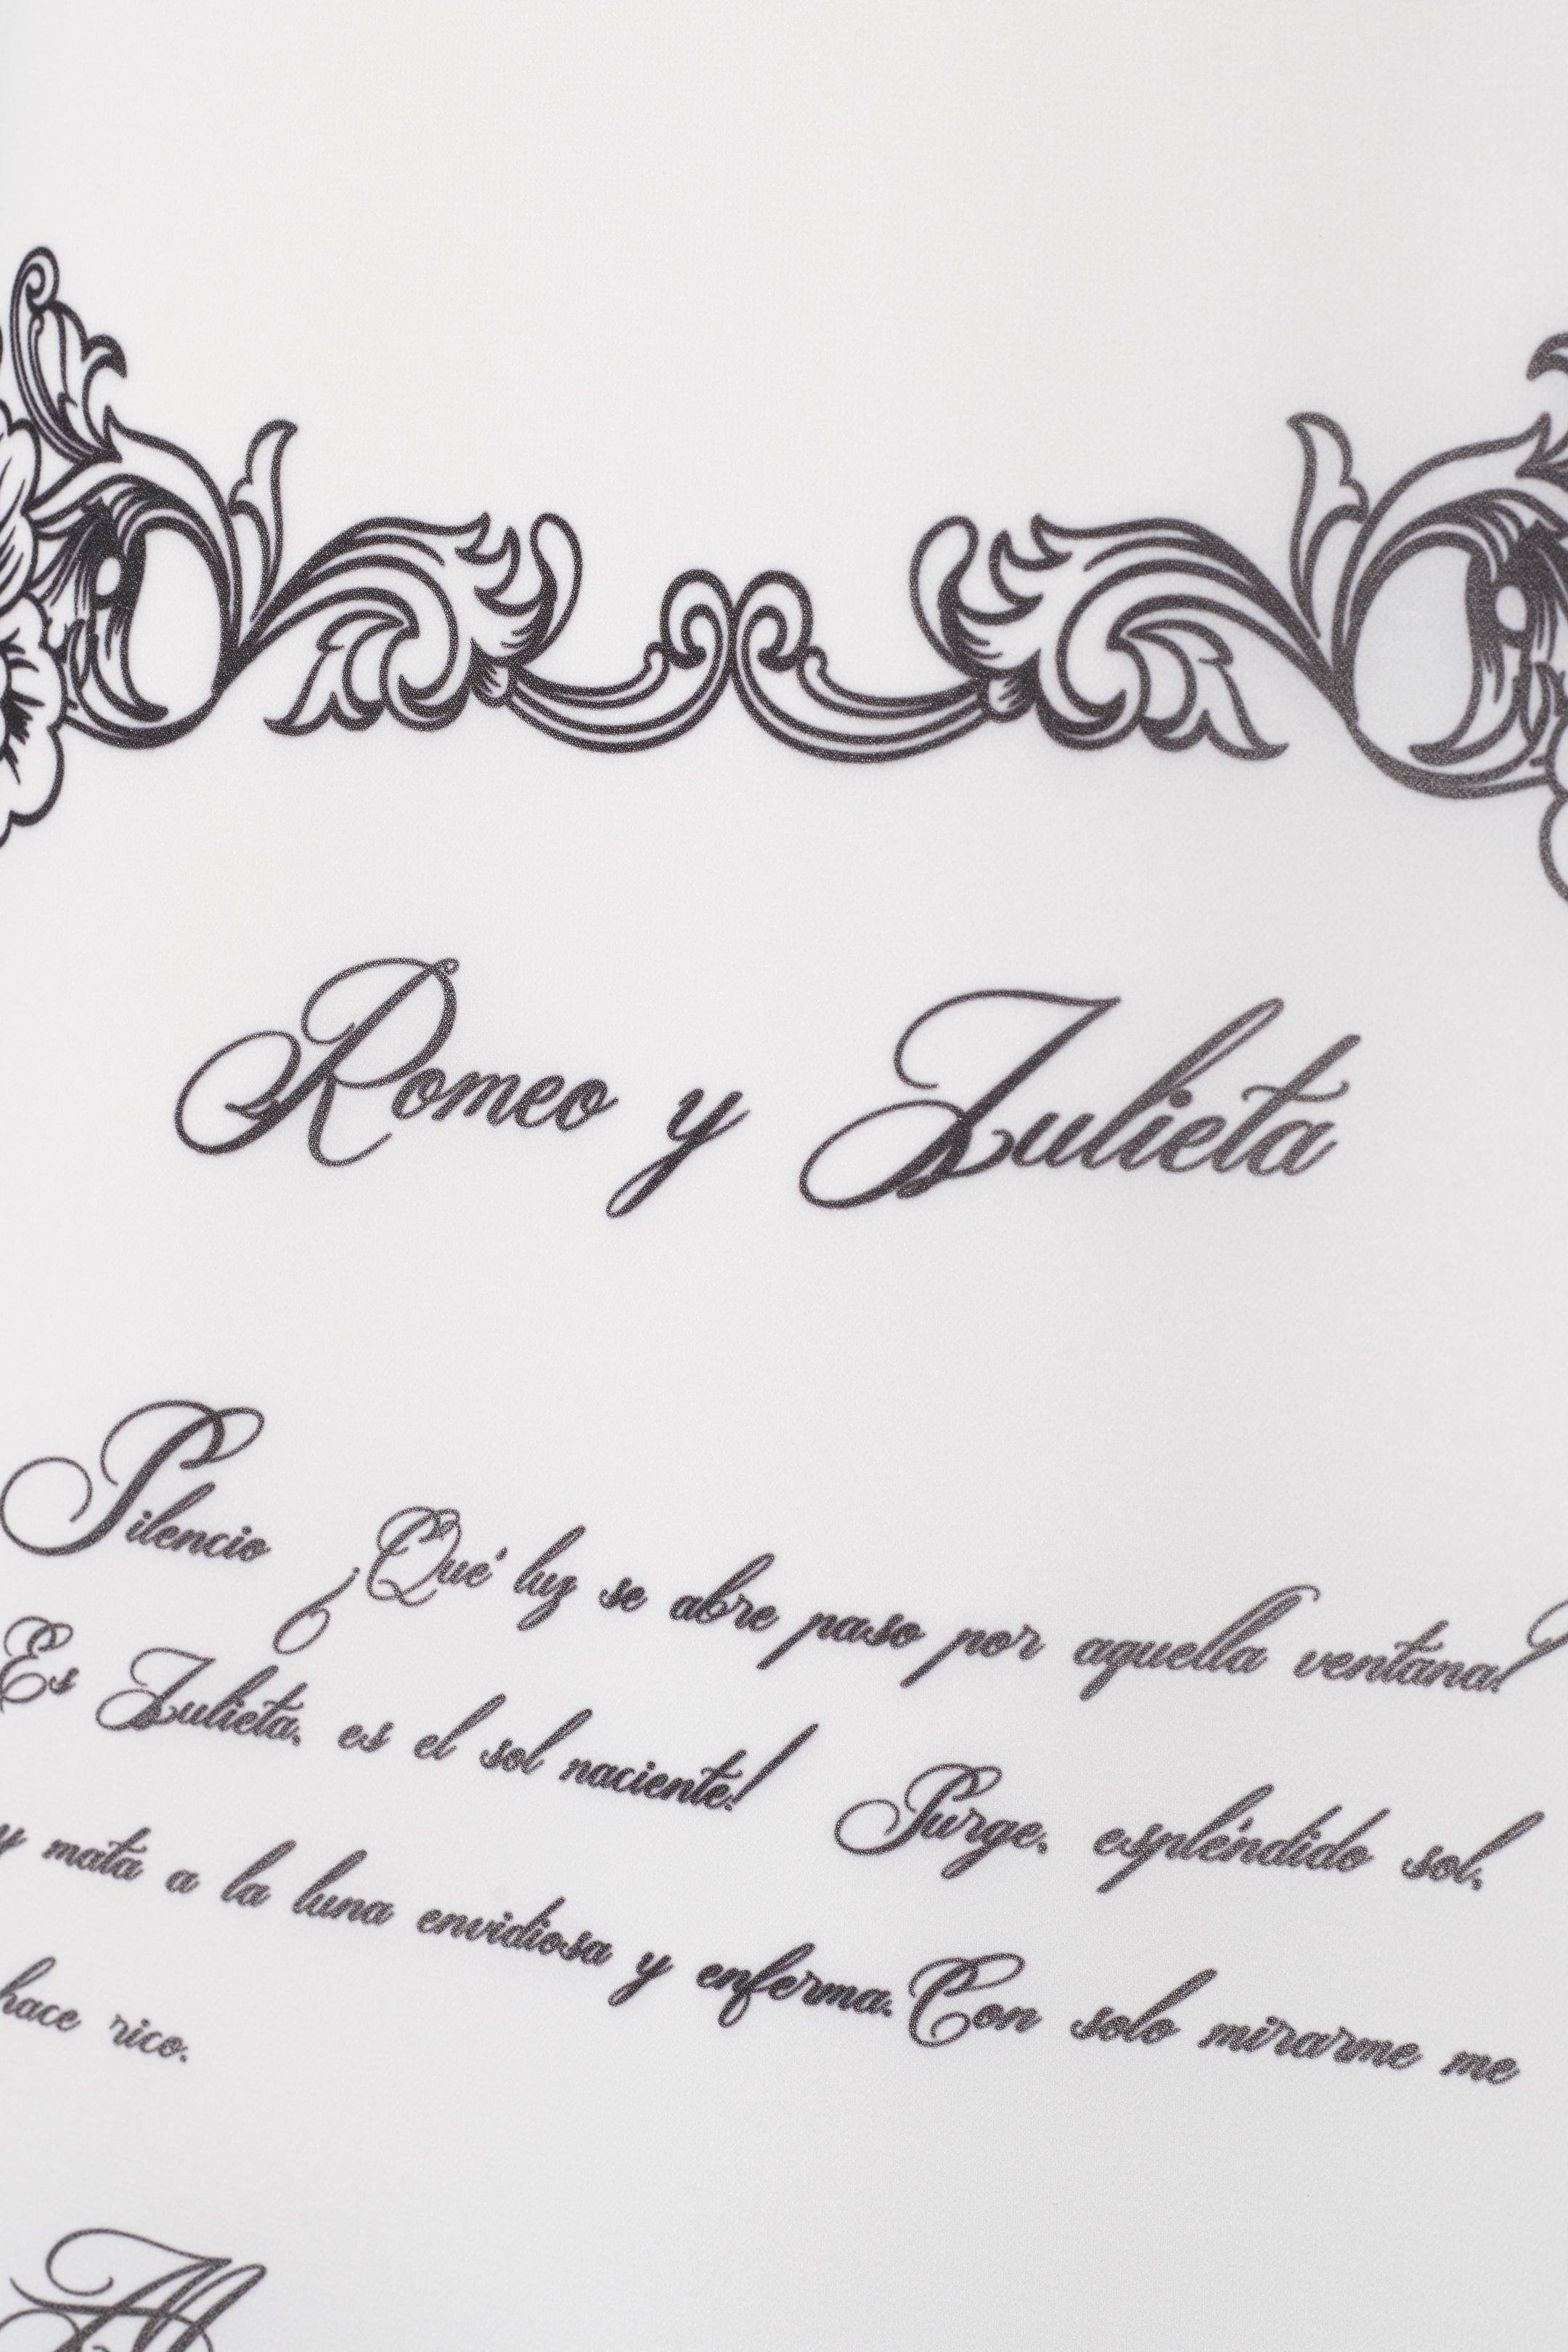 Romeo y Julieta
Silencio ¿Qué luz se abre paso por aquella ventana?
Es Julieta, es el sol naciente! Surge, espléndido sol,
y mata a la luna envidiosa y enferma. Con solo mirarme me
hace rico.